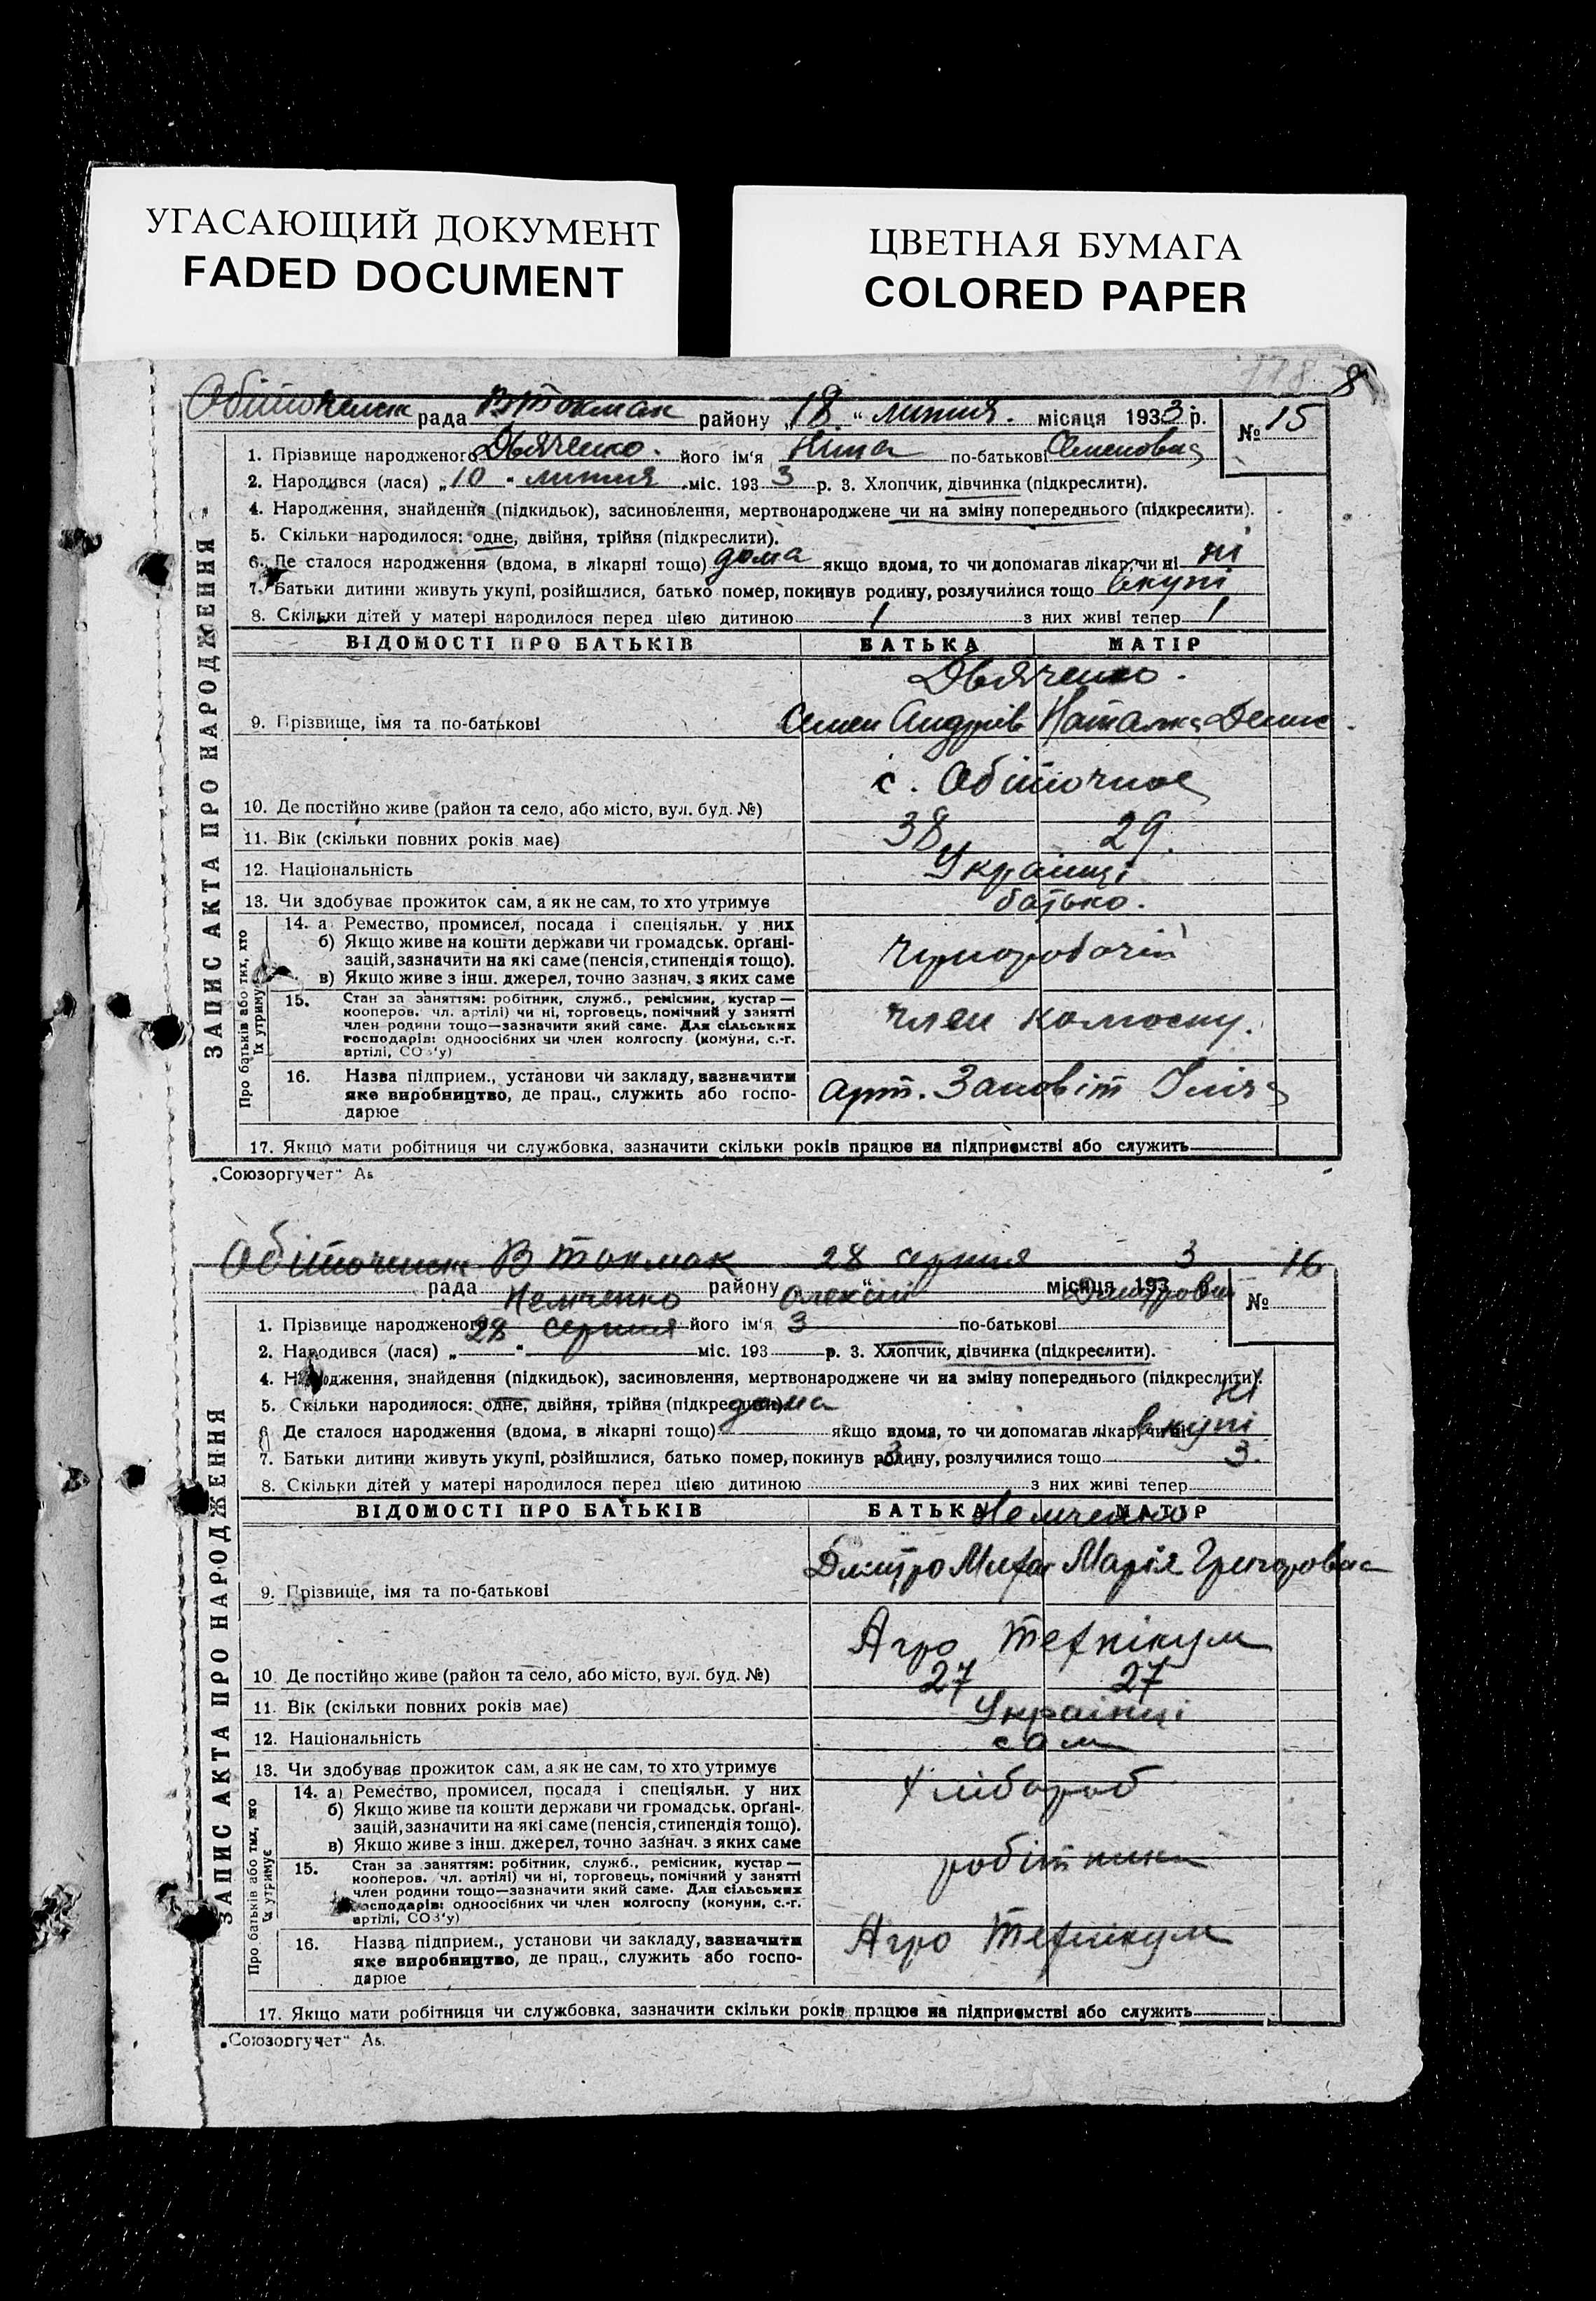 УГАСАЮЩИЙ ДОКУМЕНТ
FADED DOCUMENT
ЦВЕТНАЯ БУМАГА
COLORED PAPER
8
рада В Токмак району „18“ липня. місяця 1933 р. № 15
ЗАПИС АКТА ПРО НАРОДЖЕННЯ
1. Прізвище народженого Дьяченко. його ім'я Нина по-батькові Семеновна
2. Народився (лася) „10“ липня міс. 193 3 р. 3. Хлопчик, дівчинка (підкреслити).
4. Народження, знайдення (підкидьок), засиновлення, мертвонароджене чи на зміну попереднього (підкреслити).
5. Скільки народилося: одне, двійня, трійня (підкреслити).
6. Де сталося народження (вдома, в лікарні тощо) дома якщо вдома, то чи допомагав лікар, чи ні ні
7. Батьки дитини живуть укупі, розійшлися, батько помер, покинув родину, розлучилися тощо вкупі
8. Скільки дітей у матері народилося перед цією дитиною 1 з них живі тепер 1
ВІДОМОСТІ ПРО БАТЬКІВ БАТЬКА МАТІР
Дьяченко.
9. Прізвище, імя та по-батькові Семен Андрів Наталка Денис.
с. Обіточное
10. Де постійно живе (район та село, або місто, вул. буд. №)
11. Вік (скільки повних років має) 38 29.
12. Національність Українці
13. Чи здобуває прожиток сам, а як не сам, то хто утримує батько.
Про батьків або тих, хто їх утримує
14. а Ремество, промисел, посада і спеціяльн. у них
б) Якщо живе на кошти держави чи громадськ. орґані-
зацій, зазначити на які саме (пенсія, стипендія тощо). Чорноробочій
в) Якщо живе з інш. джерел, точно зазнач. з яких саме
15. Стан за заняттям: робітник, служб., ремісник, кустар —
кооперов. чл. артілі) чи ні, торговець, помічний у занятті
член родини тощо—зазначити який саме. Для сільських член колгоспу.
господарів: одноосібних чи член колгоспу (комуни, с.-г.
артілі, СОЗ'у)
16. Назва підприєм., установи чи закладу, зазначити
яке виробництво, де прац., служить або госпо- арт. Заповіт Ілліча
дарює
17. Якщо мати робітниця чи службовка, зазначити скільки років працює на підприємстві або служить
„Союзоргучет“
Обіточенск В Токмак 28 серпня 3 16
рада району „ “ місяця 193 р. №
ЗАПИС АКТА ПРО НАРОДЖЕННЯ
Немченко Олексій Дмитрович
1. Прізвище народженого його ім'я по-батькові
28 серпня 3
2. Народився (лася) „ “ міс. 193 р. 3. Хлопчик, дівчинка (підкреслити).
4. Народження, знайдення (підкидьок), засиновлення, мертвонароджене чи на зміну попереднього (підкреслити).
5. Скільки народилося: одне, двійня, трійня (підкреслити).
дома ні
6. Де сталося народження (вдома, в лікарні тощо) якщо вдома, то чи допомагав лікар, чи ні
вкупі
7. Батьки дитини живуть укупі, розійшлися, батько помер, покинув родину, розлучилися тощо
3 3.
8. Скільки дітей у матері народилося перед цією дитиною з них живі тепер
ВІДОМОСТІ ПРО БАТЬКІВ БАТЬКА МАТІР
Немченко
Дмитро Миха Марія Григоровна
9. Прізвище, імя та по-батькові
Агро Технікум
10 Де постійно живе (район та село, або місто, вул. буд. №)
27 27
11. Вік (скільки повних років має)
Українці
12. Національність
сам
13. Чи здобуває прожиток сам, а як не сам, то хто утримує
Про батьків або тих, хто їх утримує
14. а) Ремество, промисел, посада і спеціяльн. у них хлібороб
б) Якщо живе на кошти держави чи громадськ. орґані-
зацій, зазначити на які саме (пенсія, стипендія тощо).
в) Якщо живе з інш. джерел, точно зазнач. з яких саме
15. Стан за заняттям: робітник, служб., ремісник, кустар — робітники
кооперов. чл. артілі) чи ні, торговець, помічний у занятті
член родини тощо—зазначити який саме. Для сільських
господарів: одноосібних чи член колгоспу (комуни, с.-г.
артілі, СОЗ'у)
16. Назва підприєм., установи чи закладу, зазначити Агро Технікум
яке виробництво, де прац., служить або госпо-
дарює
17. Якщо мати робітниця чи службовка, зазначити скільки років працює на підприємстві або служить
„Союзоргучет“